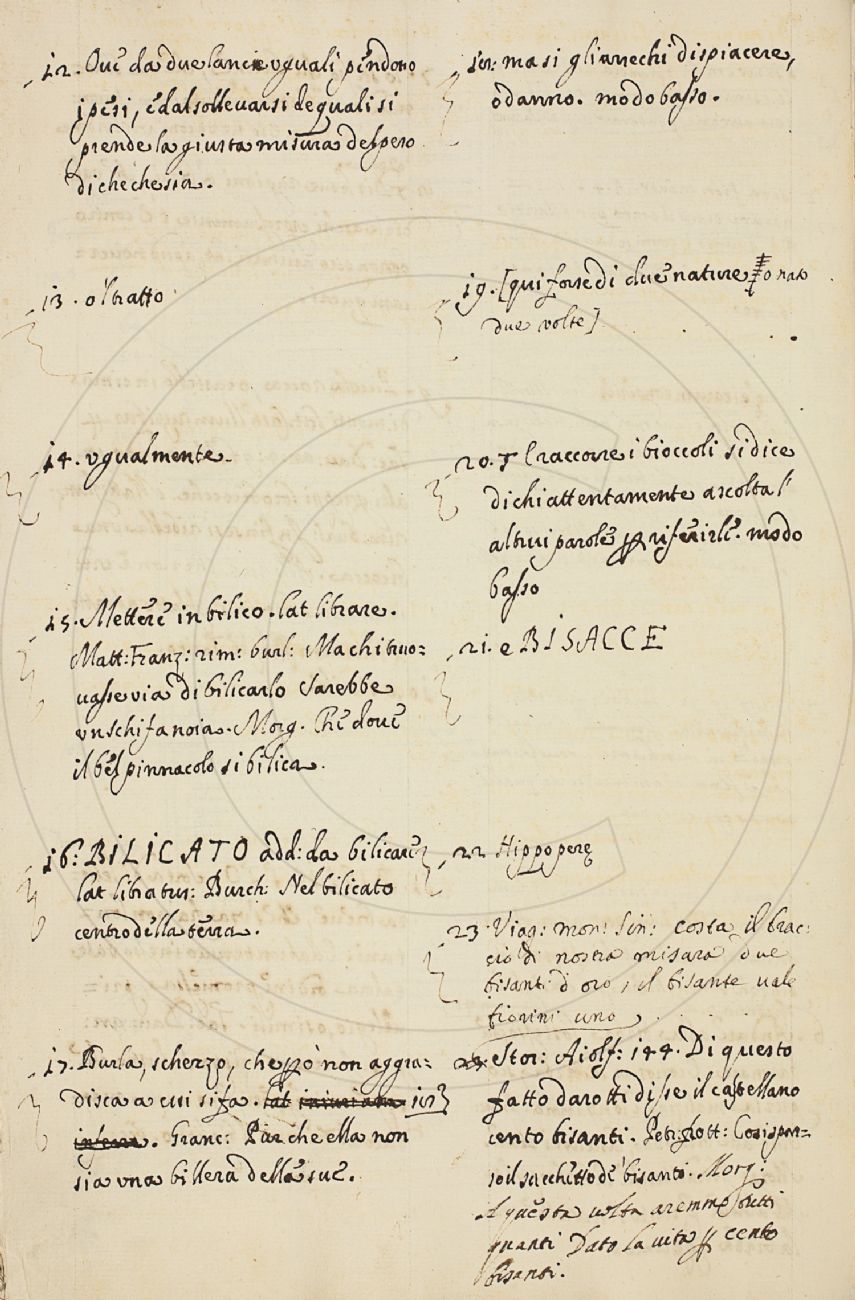 12. Ouè da due lance vguali pèndono
i pèsi, è dal solleuarsi de quali si
prende la giusta misura del peso
di chechesia.
13. o'l tratto
14. vgualmente.
15. Mettère in bilico. lat librare.
Matt: Franz: rim: burl: Ma chi truo:
uasse via di bilicarlo Sarebbe
vn schifanoia. Morg. Pè doue
il bèl pinnacolo si bilica.
16. BILICATO add: da bilicare
lat libratus: Burch: Nel bilicato
centro della tèrra.
17. Burla, scherzo, che però non aggra:
disca a cui si fa.
Granc: Par che ella non
sia vna billera dellè sue.
ma si gli arrechi dispiacere,
o danno. modo basso.
19. [qui forse di due nature o nato
due volte]
20. raccorre i bioccoli si dice
di chi attentamente ascolta l'
altrui parolè p rifèrirlè. modo
basso
21. e BISACCE
22 Hippoperę
23. Viag: mon: Sin: costa il brac:
cio di nostra misara due
bisanti d oro, il bisante vale
fiorini uno
24 Stor: Aiolf: 144. Di questo
fatto darotti disse il castellano
cento bisanti. Cosi spar=
so il sacchètto de' bisanti. Morg:
quèsta volta aremmo tutti
quanti Dato la vita p cento
bisanti.